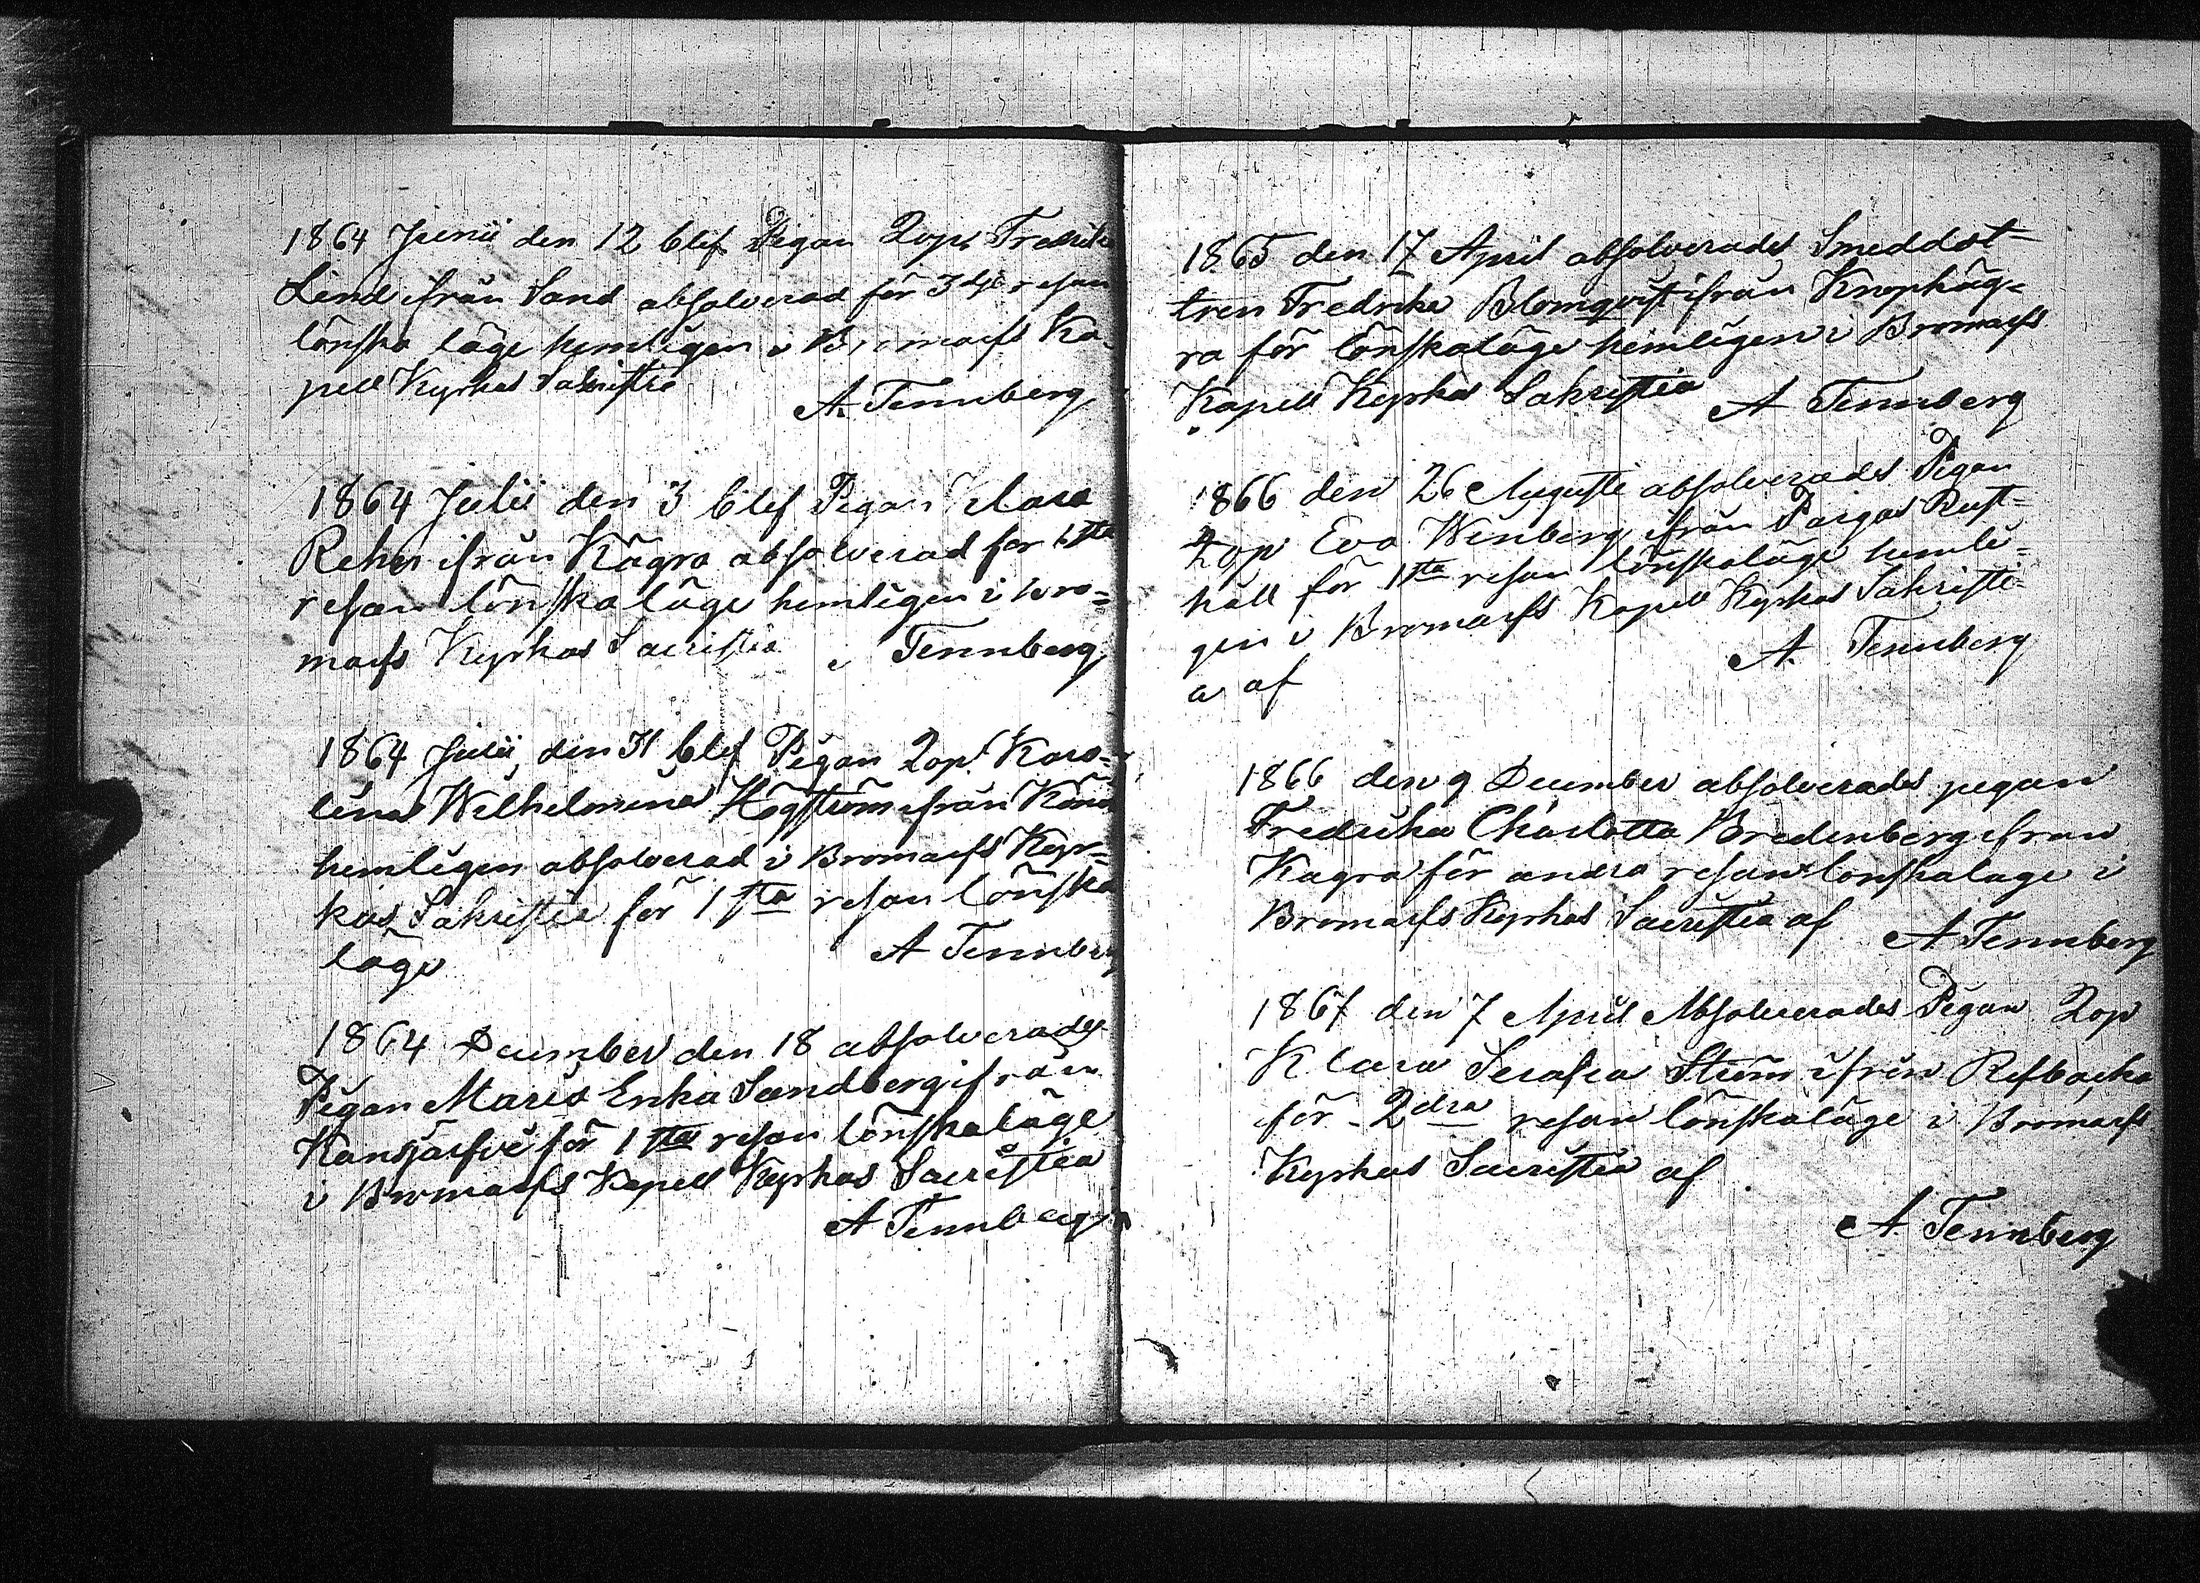 1864 Junii den 12 blef Pigan 2op. Fredrika
Lind ifrån Sand absolverad för 3dje resan
lönska läge hemligen i Bromarfs Ka-
pell Kyrkas Sakristia
A. Tennberg
1864 Julii den 3 blef Pigan Klara
ifrån Kägra absolverad för 1sta
resan lönskaläge hemligen i Bro=
marfs Kyrkas Sacristia
Tennberg
1864 Julii den 31 blef Pigan 2op. Karo=
lina Wilhelmina Högström ifrån
hemligen absolverad i Bromarfs Kyr=
kas Sakristia för 1sta resan lönska
läge
A Tennberg
1864 December den 18 absolverades
Pigan Maria Erika Sandberg ifrån
Kansjärfvi för 1sta resan lönskaläge
i Bromarfs Kapell Kyrkas Sacristia
A Tennberg
1865 den 17 April absolverades Smeddot=
tren Fredrika Blomqvist ifrån Knophäg=
ra för lönskaläge hemligen i Bromarfs
Kapell Kyrkas Sakristia
A Tennberg
1866 den 26 Augusti absolverades Pigan
2op Eva Winberg ifrån Pargas Rust=
håll för 1sta resan lönskaläge hemli=
gen i Bromarfs Kapell Kyrkas Sakristi-
a af
A. Tennberg
1866 den 9 December absolverades pigan
Fredrika Charlotta Bredenberg ifrån
Kagra för andra resan lönskaläge i
Bromarfs Kyrkas Sacristia af
A Tennberg
1867 den 7 April Absolverades Pigan 2op
Klara Serafia Ström ifrån Refbacka
för 2dra resan lönskaläge i Bromarfs
Kyrkas Sacristia af
A. Tennberg